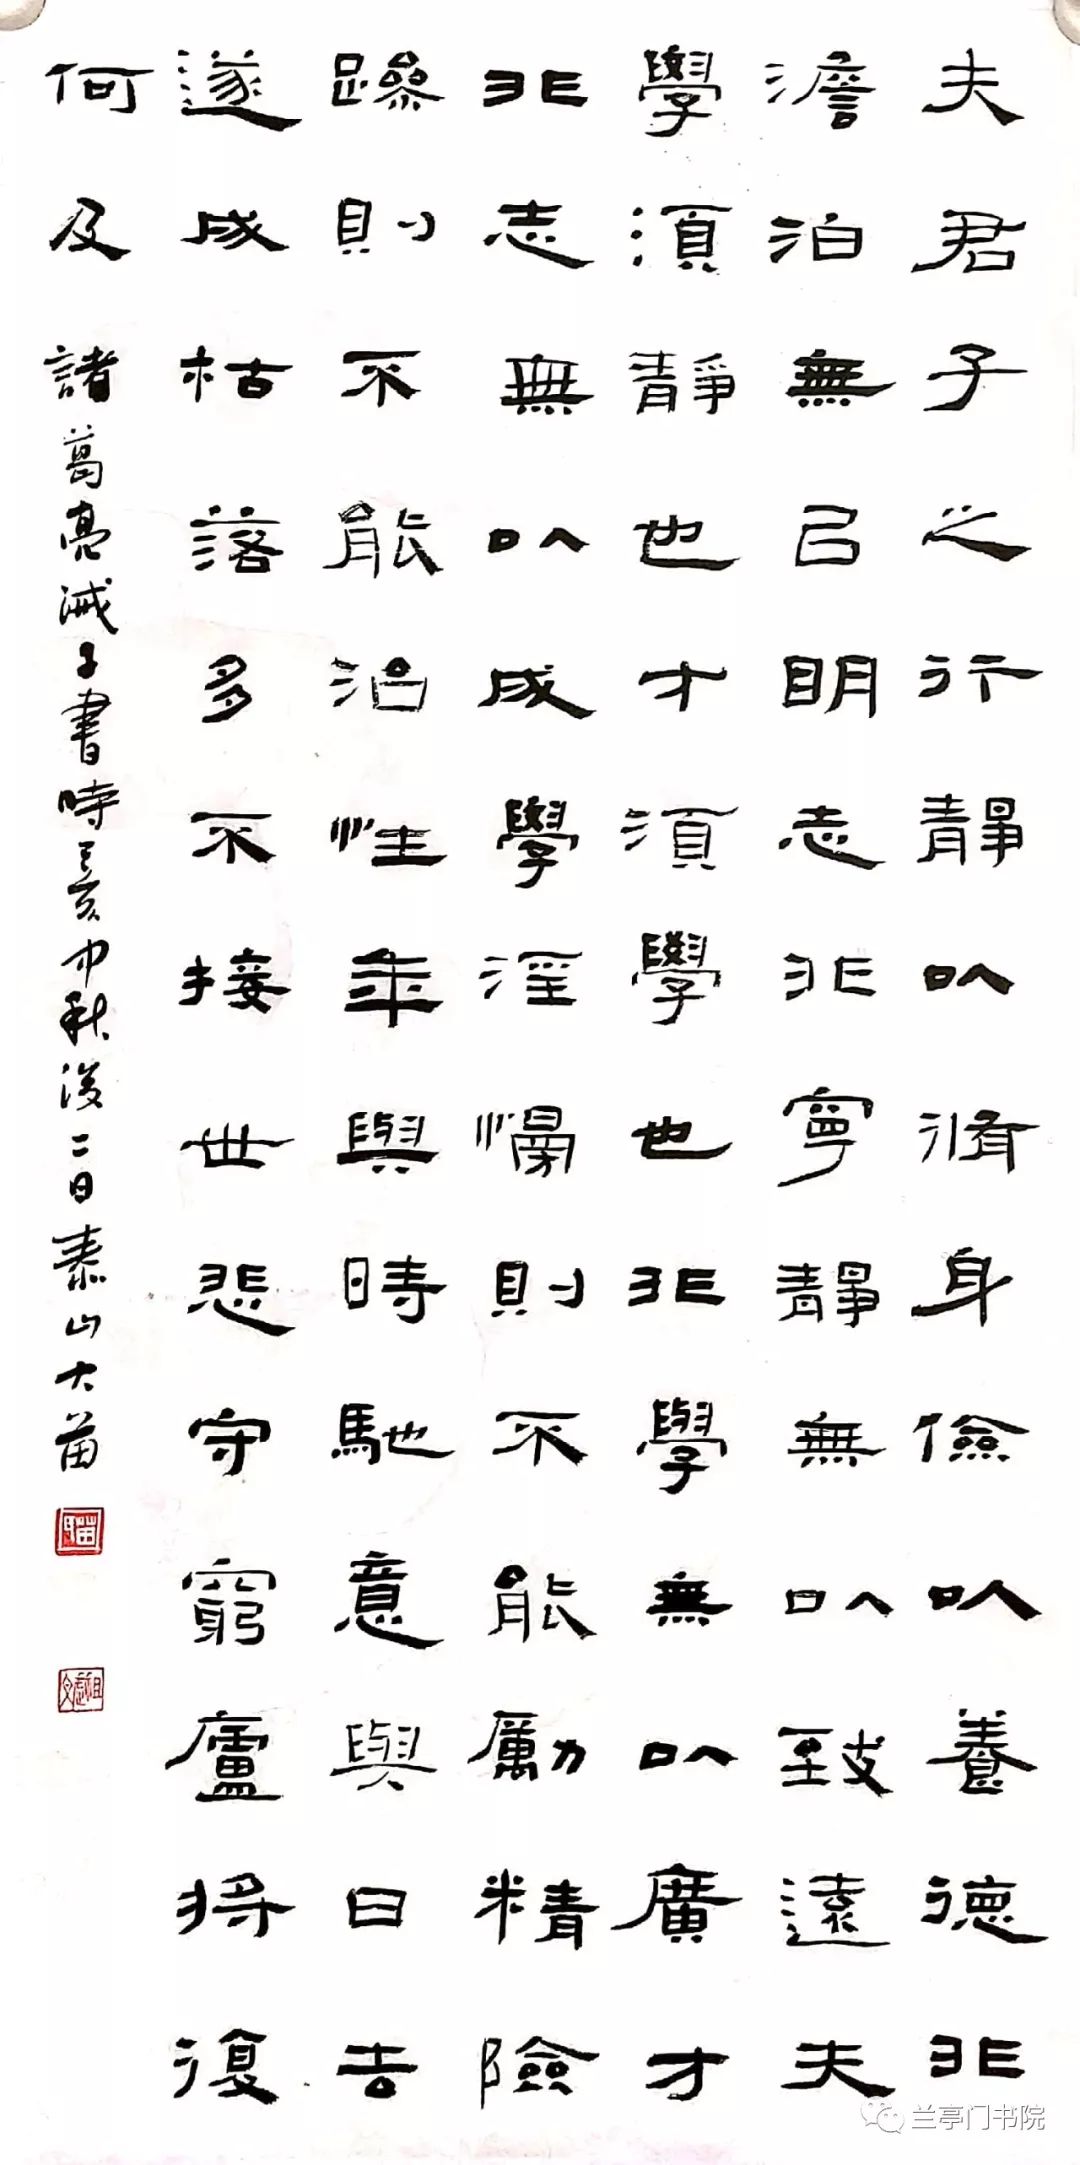 夫君子之行靜以脩身儉以養德非
澹泊無以明志非寧靜無以致遠夫
學須靜也才須學也非學無以廣才
非志無以成學淫慢則不能勵精險
躁則不能治性年與時馳意與日去
遂成枯落多不接世悲守窮廬將復
何及諸葛亮誡子書時己亥中秋後二日泰山大苗
兰亭门书院